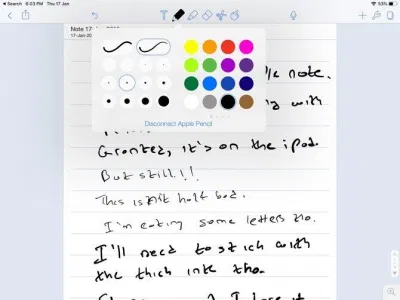 Search 6:03 PM Thu 17 Jan
53%
Note 17
17-Jan-20
note.
with
Disconnect Apple Pencil
Granted, it's on the ipad.
But still!!
This is not half bad.
I'm eating some letters tho.
I'll need to stick with
the thick into tho.